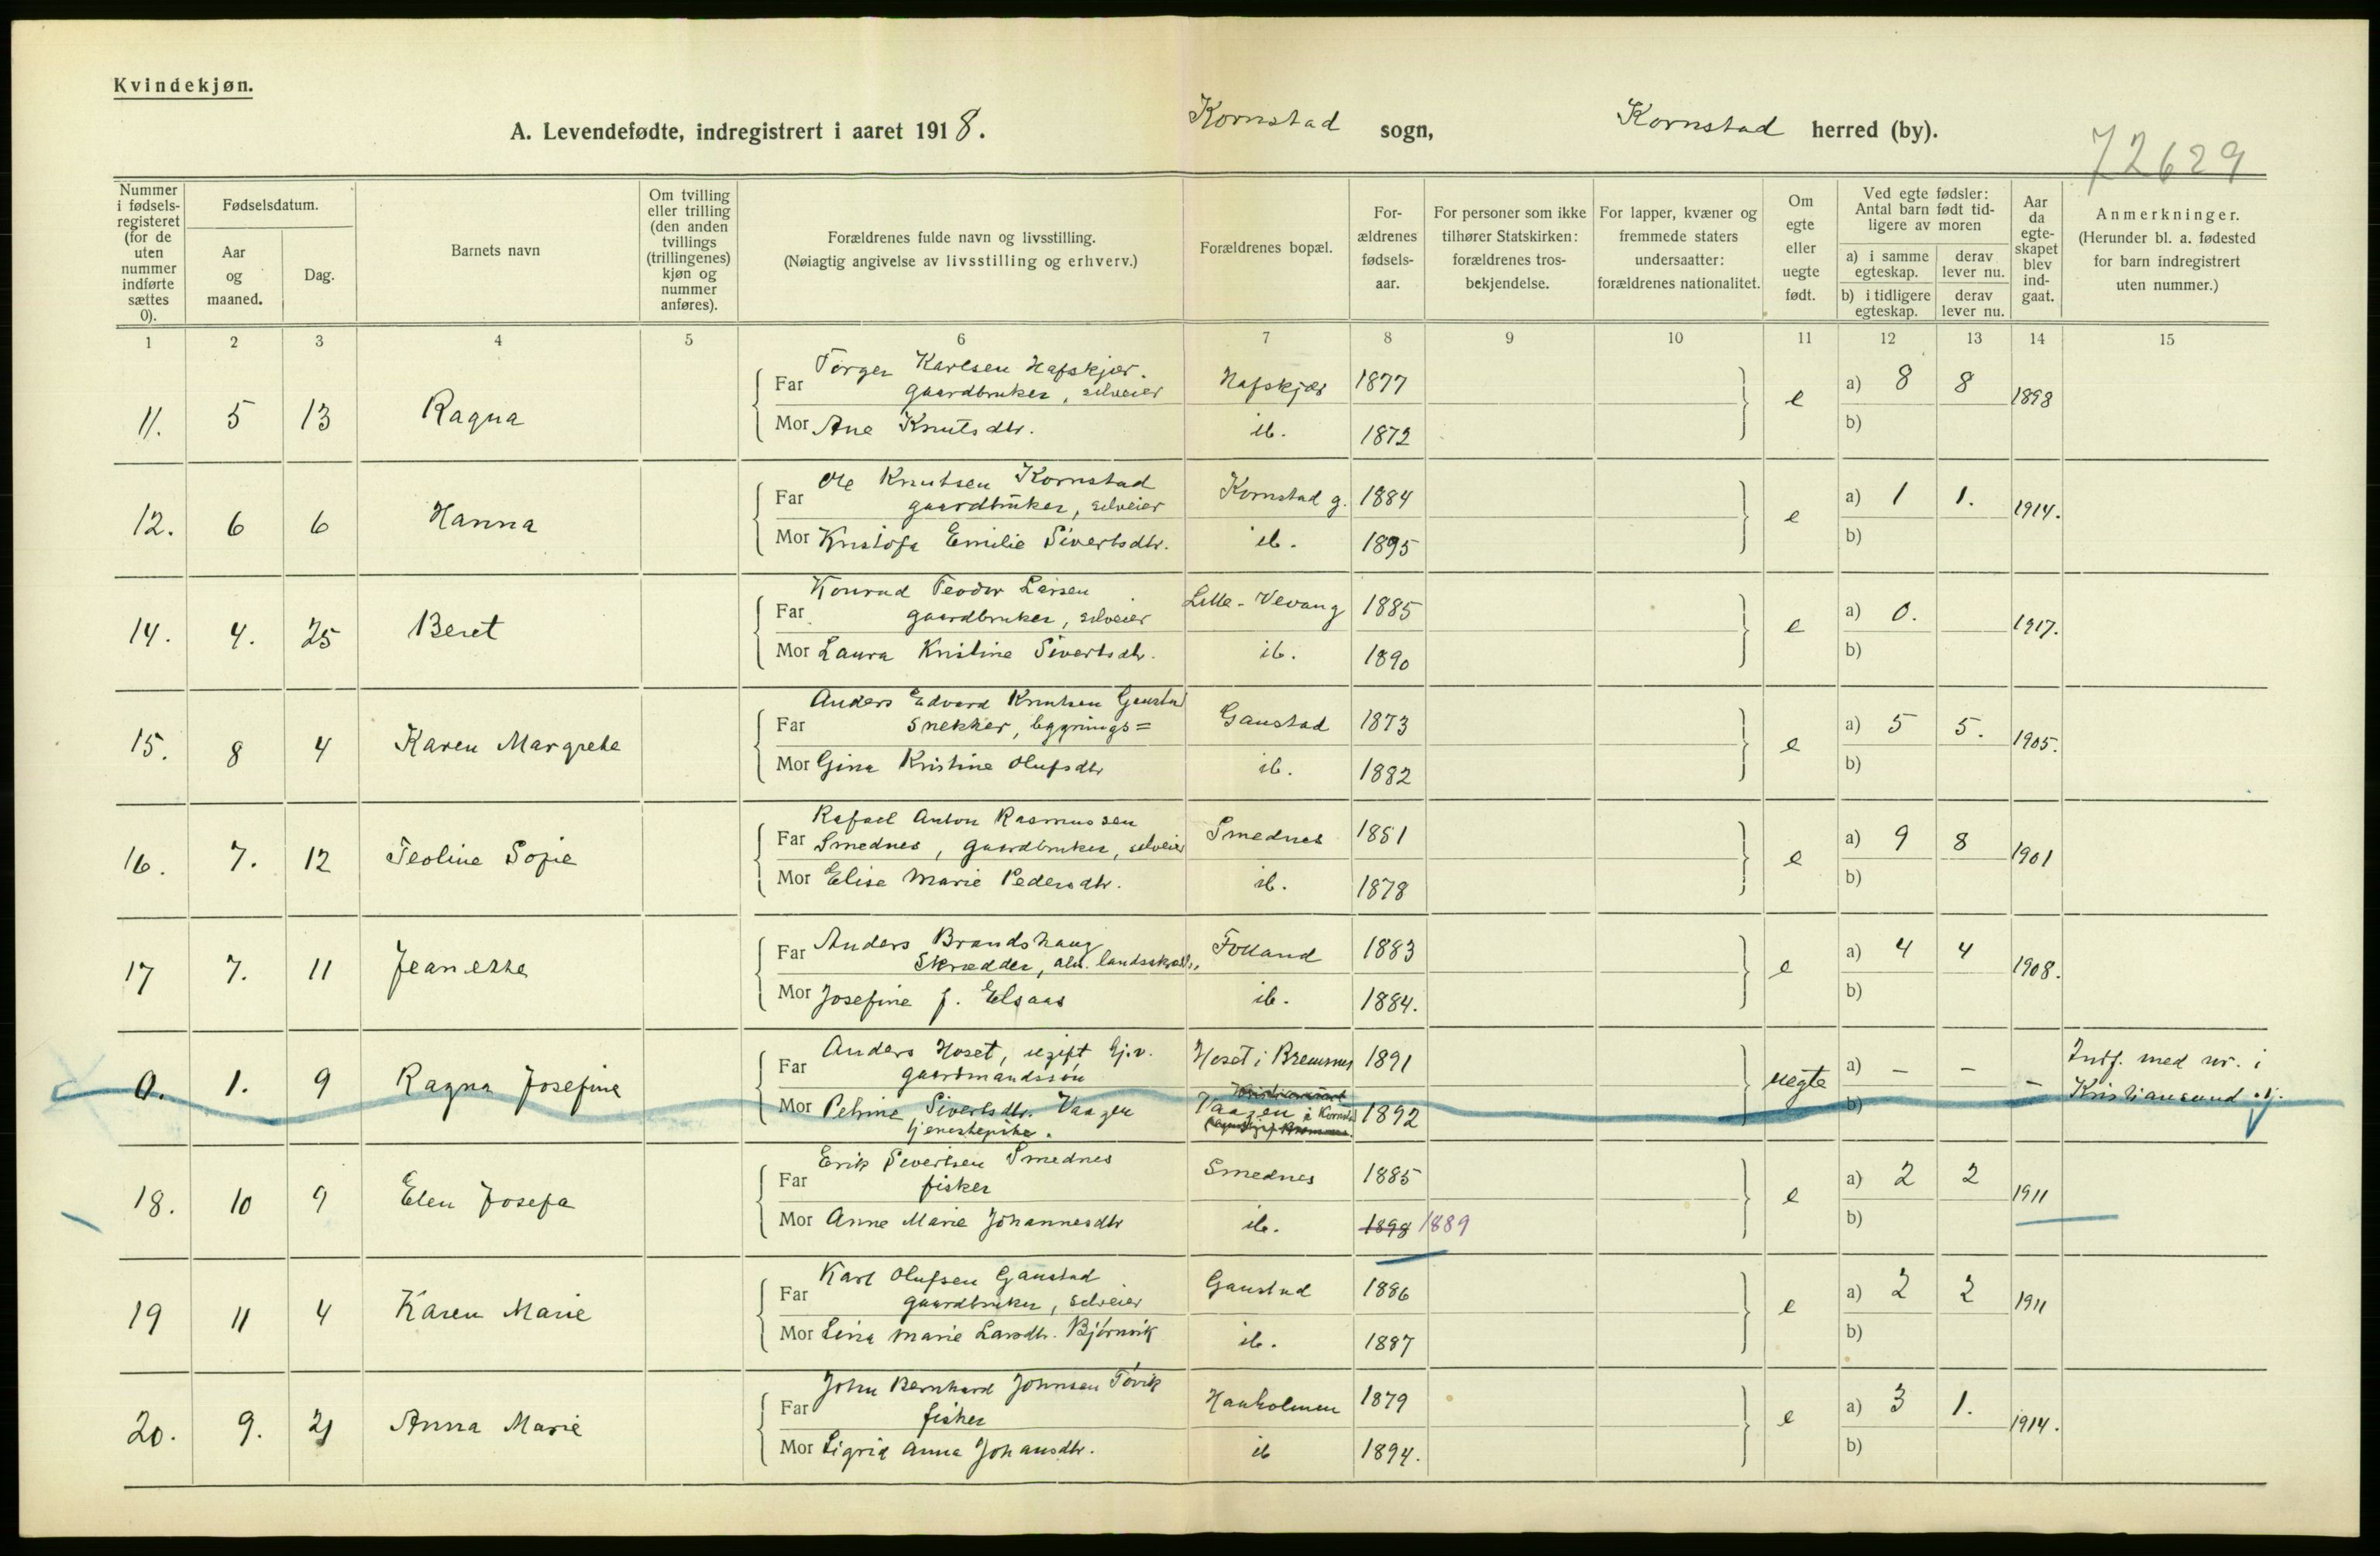 Kvindekjøn.
A. Levendefødte, indregistrert i aaret 1918. Kornstad sogn, Kornstad herred (by).
72629
Nummer i fødsels-registeret (for de uten nummer indførte sættes 0).
Fødselsdatum.
Aar og maaned.
Dag.
Barnets navn
Om tvilling eller trilling (den anden tvillings (trillingenes) kjøn og nummer anføres).
Forældrenes fulde navn og livsstilling.
(Nøiagtig angivelse av livsstilling og erhverv.)
Forældrenes bopæl.
For-ældrenes fødsels-aar.
For personer som ikke tilhører Statskirken: forældrenes tros-bekjendelse.
For lapper, kvæner og fremmede staters undersaatter: forældrenes nationalitet.
Om egte eller uegte født.
Ved egte fødsler: Antal barn født tid-ligere av moren
a) i samme egteskap. derav lever nu.
b) i tidligere egteskap. derav lever nu.
Aar da egte-skapet blev ind-gaat.
Anmerkninger.
(Herunder bl. a. fødested for barn indregistrert uten nummer.)
1 2 3 4 5 6 7 8 9 10 11 12 13 14 15
11. 5 13 Ragna
Far Torger Karlsen Hafskjær. gaardbruker, selveier Hafskjær 1877 e a) 8 8 1898
Mor Ane Knutsdtr. ib. 1872 b)
12. 6 6 Hanna
Far Ole Knutsen Kornstad gaardbruker, selveier Kornstad g. 1884 e a) 1 1. 1914.
Mor Kristofa Emilie Sivertsdtr. ib. 1895 b)
14. 4. 25 Beret
Far Konrad Teodor Larsen gaardbruker, selveier Lille-Vevang 1885 e a) 0. 1917.
Mor Laura Kristine Sivertsdtr. ib. 1890 b)
15. 8 4 Karen Margrete
Far Anders Edvard Knutsen Gaustad snekker, bygnings= Gaustad 1873 e a) 5 5. 1905.
Mor Gina Kristine Olufsdtr ib. 1882 b)
16. 7. 12 Teoline Sofie
Far Rafael Anton Rasmussen Smednes, gaardbruker, selveier Smednes 1881 e a) 9 8 1901
Mor Elise Marie Pedersdtr. ib. 1878 b)
17 7. 11 Jeanette
Far Anders Brandshaug Skrædder, alm. Folland 1883 e a) 4 4 1908.
Mor Josefine f. Elsaas ib. 1884. b)
0. 1. 9 Ragna Josefine
Far Anders Hoset, ugift gaardmandssøn Hoset i Bremsnes 1891 uegte a) - - - Indf. med nr. i
Mor Petrine Sivertsdtr. Vaagen tjenestepike. Vaagen i Kornstad 1892 b) Kristiansund
18. 10 9 Elen Josefa
Far Erik Sivertsen Smednes fisker Smednes 1885 e a) 2 2 1911
Mor Anne Marie Johannesdtr ib. 1898 1889 b)
19 11 4 Karen Marie
Far Karl Olufsen Gaustad gaardbruker, selveier Gaustad 1886 e a) 2 2 1911
Mor Lina Marie Larsdtr. Bjørnvik ib. 1887 b)
20. 9. 21 Anna Marie
Far John Bernhard Johnsen Tøvik fisker Hanholmen 1879 e a) 3 1. 1914.
Mor Sigrid Anna Johansdtr. ib 1894. b)